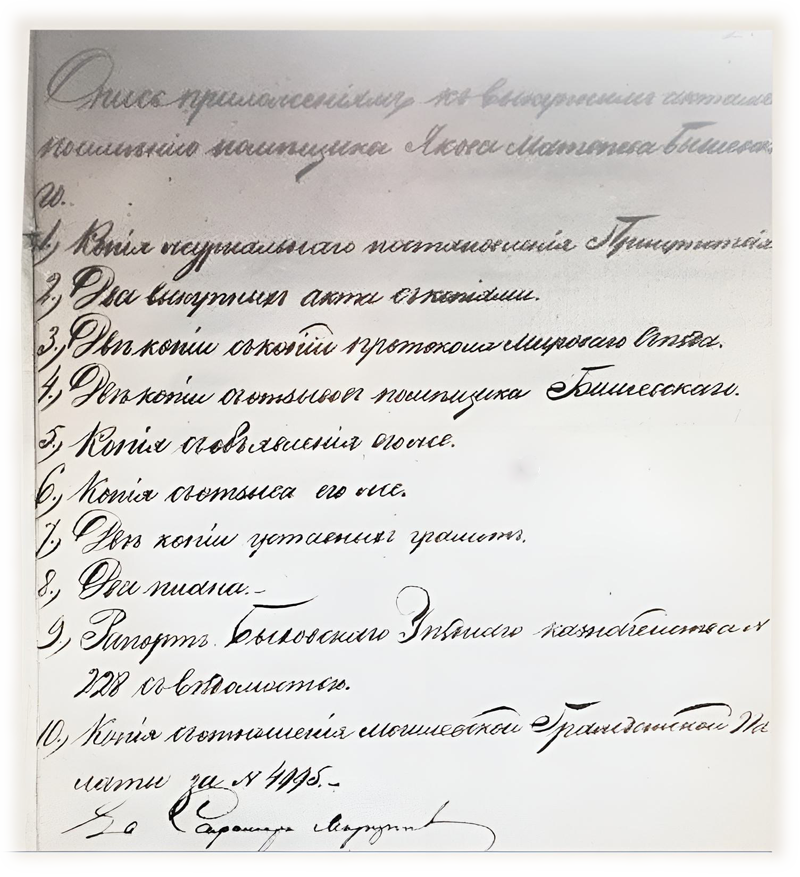 Опись приложеніямъ къ выкупнымъ актамъ
помѣщика Якова Матвѣева Бышевска
го.
1.) Копія журнальнаго постановленія Присутствія
2.) Два выкупныхъ акта съ копіями.
3.) Двѣ копіи съ копіи протокола Мироваго Съѣзда.
4.) Двѣ копіи съ отзывовъ помѣщика Бышевскаго.
5.) Копія съ объявленія его же.
6.) Копія съ отзыва его же.
7.) Двѣ копіи уставныхъ грамотъ.
8.) Два плана.-
9.) Рапортъ Быховскаго Уѣзднаго казначейства №
228 съ вѣдомостью.
10.) Копія съ отношенія Могилевской Гражданской Па
латы за № 4995.-
За